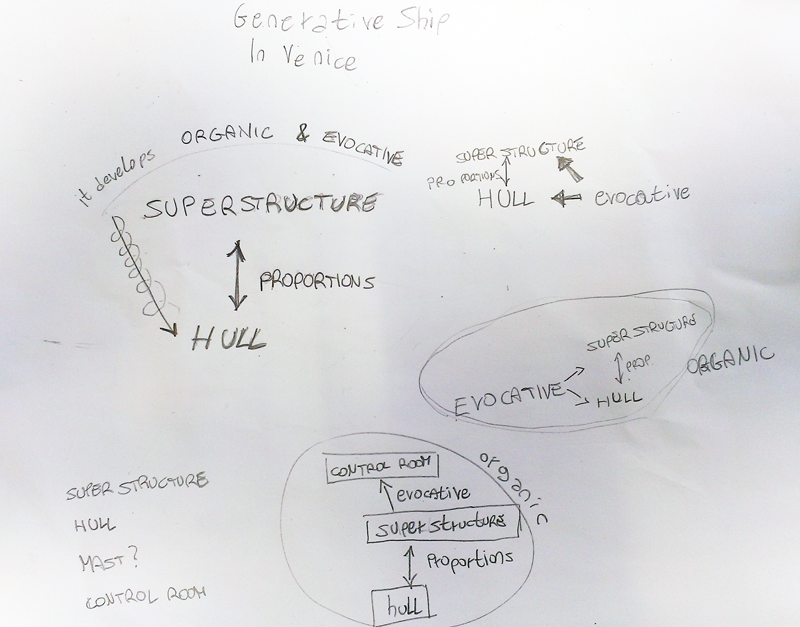 Generative Ship
In Venice
it develops ORGANIC & EVOCATIVE
SUPERSTRUCTURE
PROPORTIONS
HULL
SUPER STRUCTURE
PROPORTIONS
HULL
evocative
SUPER STRUCTURE
PROP
EVOCATIVE
HULL
ORGANIC
SUPER STRUCTURE
HULL
MAST?
CONTROL ROOM
CONTROL ROOM
evocative
superstructure
Proportions
hull
organic